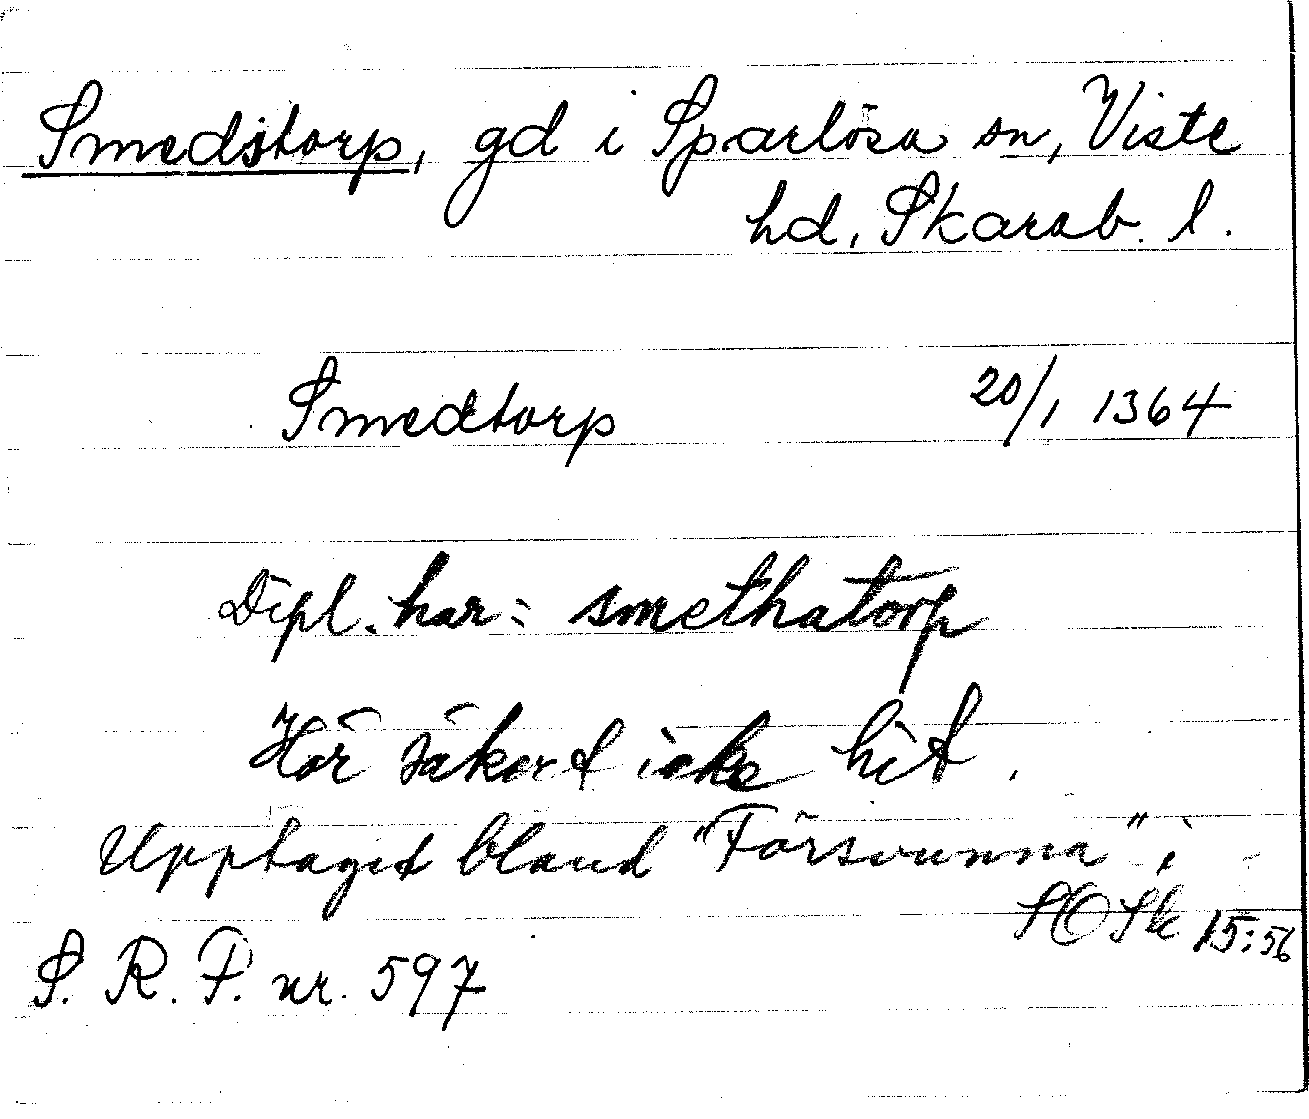 Smedstorp, gd i Sparlösa sn, Viste
hd, Skarab. l.
Smedtorp 20/1 1364
Dipl. har: smethatorp
Hör säkert icke hit.
Upptaget bland "Försvunna" i
SOSk 15:56
S. R. P. nr. 597